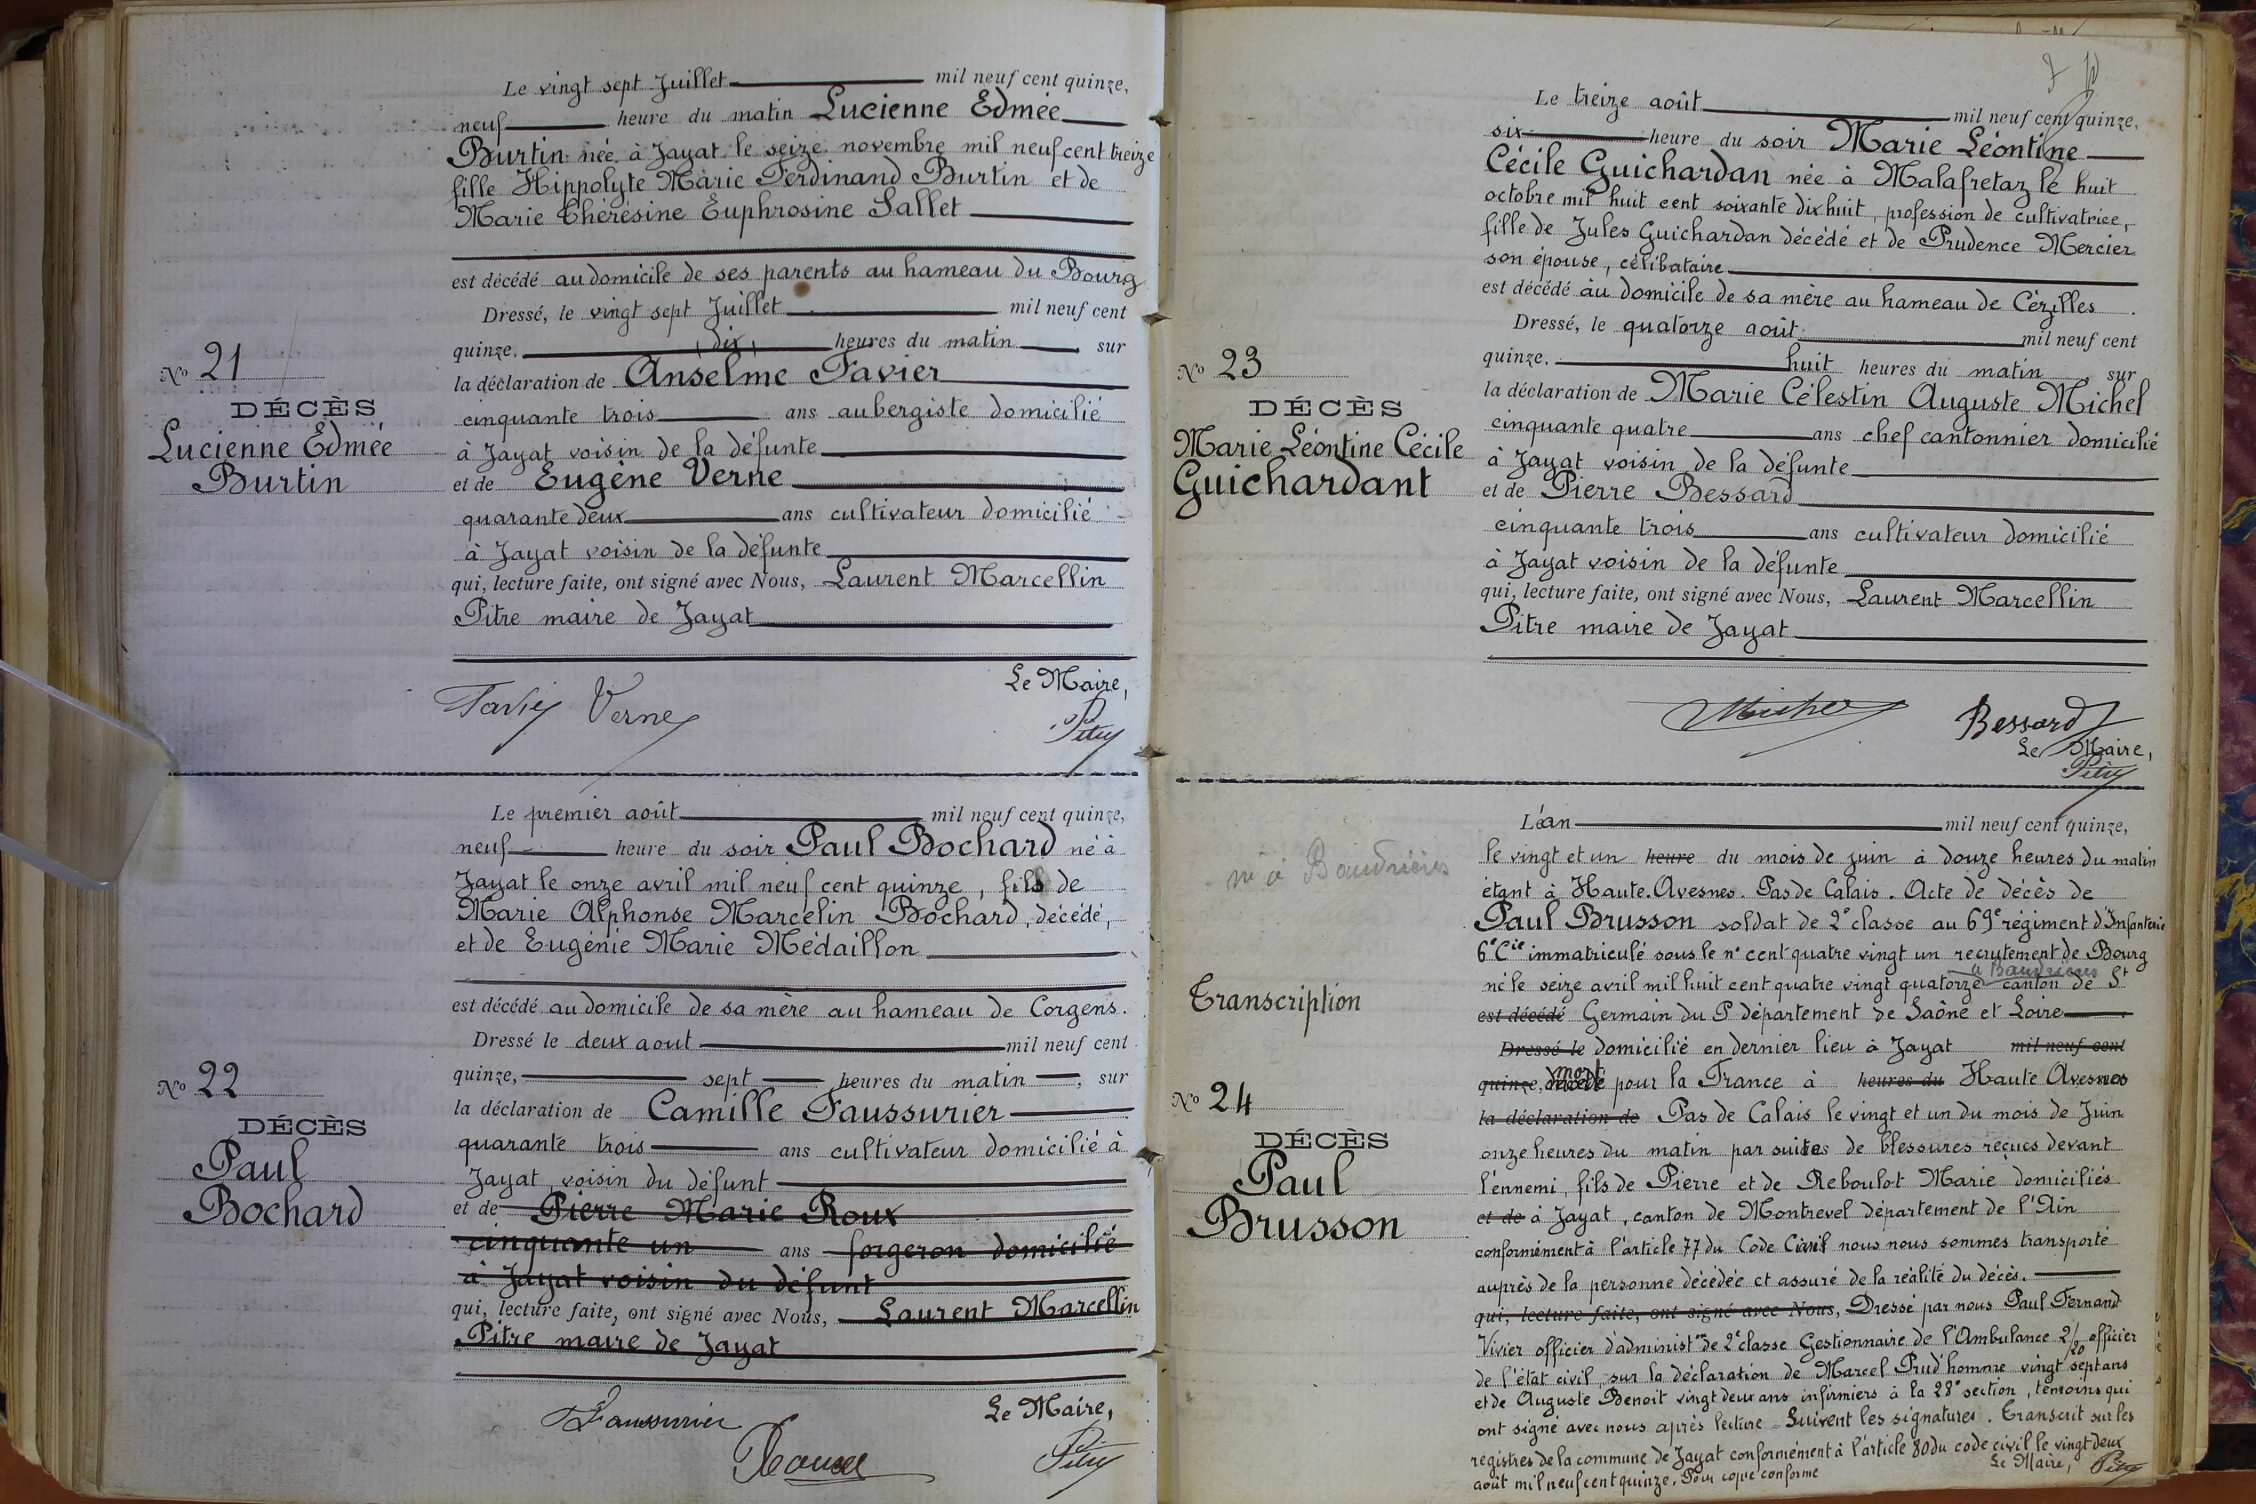 Le vingt sept Juillet mil neuf cent quinze,
neuf heure du matin Lucienne Edmée
Burtin née à Jayat le seize novembre mil neuf cent treize
fille Hippolyte Marie Ferdinand Burtin et de
Marie Thérésine Euphrosine Sallet
est décédé au domicile de ses parents au hameau du Bourg
Dressé, le vingt sept Juillet mil neuf cent
quinze. dix heures du matin sur
la déclaration de Anselme Favier
cinquante trois ans aubergiste domicilié
à Jayat voisin de la défunte
et de Eugène Verne
quarante deux ans cultivateur domicilié
à Jayat voisin de la défunte
qui, lecture faite, ont signé avec Nous, Laurent Marcellin
Pitre maire de Jayat
Le Maire,
Favier Verne
Pitre
No 21
DÉCÈS
Lucienne Edmée
Burtin
Le premier août mil neuf cent quinze,
neuf heure du soir Paul Bochard né à
Jayat le onze avril mil neuf cent quinze, fils de
Marie Alphonse Marcelin Bochard, décédé,
et de Eugénie Marie Médaillon
est décédé au domicile de sa mère au hameau de Corgens.
Dressé le deux aout mil neuf cent
quinze, sept heures du matin, sur
la déclaration de Camille Faussurier
quarante trois ans cultivateur domicilié à
Jayat, voisin du défunt
et de Pierre Marie Roux
cinquante un ans forgeron domicilié
à Jayat voisin du défunt
qui, lecture faite, ont signé avec Nous, Laurent Marcellin
Pitre maire de Jayat
Le Maire,
Faussurier
Pitre
No 22
DÉCÈS
Paul
Bochard
Le treize août mil neuf cent quinze,
six heure du soir Marie Léontine
Cécile Guichardan née à Malafretaz le huit
octobre mil huit cent soixante dix huit, profession de cultivatrice,
fille de Jules Guichardan décédé et de Prudence Mercier
son épouse, célibataire
est décédé au domicile de sa mère au hameau de Cézilles.
Dressé, le quatorze août mil neuf cent
quinze. huit heures du matin sur
la déclaration de Marie Célestin Auguste Michel
cinquante quatre ans chef cantonnier domicilié
à Jayat voisin de la défunte
et de Pierre Bessard
cinquante trois ans cultivateur domicilié
à Jayat voisin de la défunte
qui, lecture faite, ont signé avec Nous, Laurent Marcellin
Pitre maire de Jayat
Michel Bessard
Le Maire,
Pitre
No 23
DÉCÈS
Marie Léontine Cécile
Guichardant
L'an mil neuf cent quinze,
le vingt et un heure du mois de juin à douze heures du matin
étant à Haute.Avesnes. Pas de Calais. Acte de décès de
Paul Brusson soldat de 2e classe au 69e régiment d'Infanterie
6e Cie immatriculé sous le no cent quatre vingt un recrutement de Bourg
à Baudrières
né le seize avril mil huit cent quatre vingt quatorze canton de St
est décédé Germain du P département de Saône et Loire
Dressé le domicilié en dernier lieu à Jayat mil neuf cent
quinze, décédé mort pour la France à heures du Haute Avesnes
la déclaration de Pas de Calais le vingt et un du mois de Juin
onze heures du matin par suites de blessures reçues devant
l'énnemi, fils de Pierre et de Reboulot Marie domiciliés
et de à Jayat, canton de Montrevel département de l'Ain
conformément à l'article 77 du Code Civil nous nous sommes transporté
auprès de la personne décédée et assuré de la réalité du décès.
qui, lecture faite, ont signé avec Nous, Dressé par nous Paul Fernand
Vivier officier d'administon de 2e classe Gestionnaire de l'Ambulance 2/20 officier
de l'état civil, sur la déclaration de Marcel Prud'homme vingt sept ans
et de Auguste Benoit vingt deux ans infirmiers à la 28e section, témoins qui
ont signé avec nous après lecture - Suivent les signatures. Transcrit sur les
registres de la commune de Jayat conformément à l'article 80 du code civil le vingt deux
août mil neuf cent quinze. Pour copie conforme
Le Maire, Pitre
né à Baudrières
Transcription
No 24
DÉCÈS
Paul
Brusson